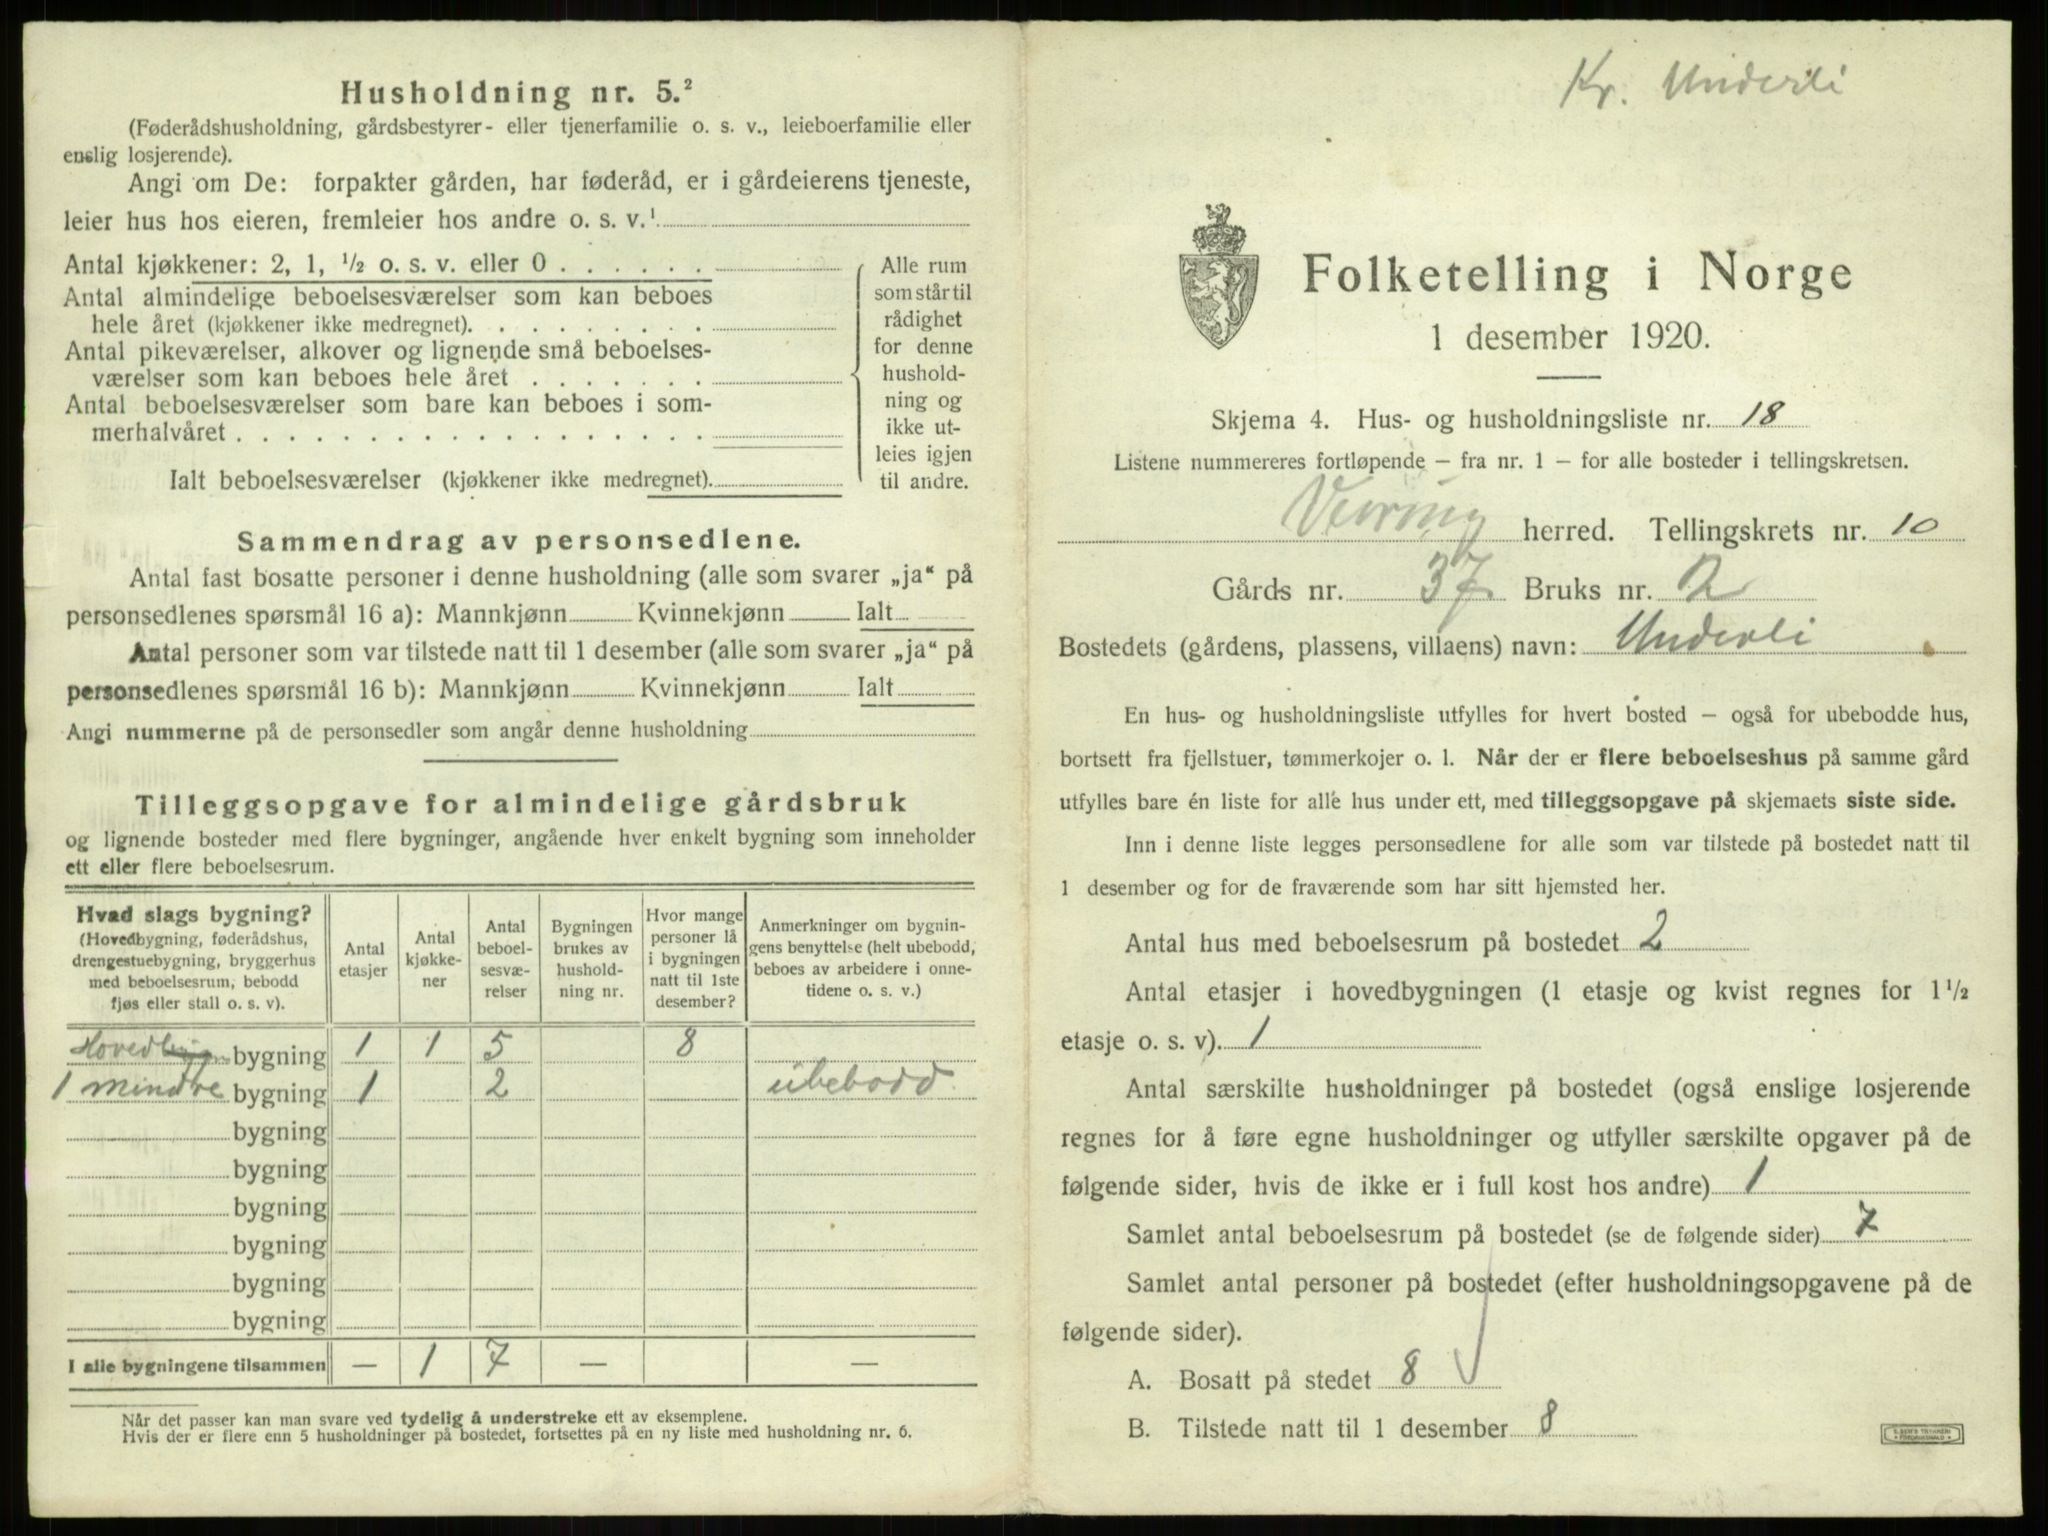 Husholdning nr. 5.²
(Føderådshusholdning, gårdsbestyrer- eller tjenerfamilie o. s. v., leieboerfamilie eller
enslig losjerende).
Angi om De: forpakter gården, har føderåd, er i gårdeierens tjeneste,
leier hus hos eieren, fremleier hos andre o. s. v.¹
Antal kjøkkener: 2, 1, ½ o. s. v. eller 0 . . . . . .
Antal almindelige beboelsesværelser som kan beboes
hele året (kjøkkener ikke medregnet). . . . . . . . .
Antal pikeværelser, alkover og lignende små beboelses-
værelser som kan beboes hele året . . . . . . .
Antal beboelsesværelser som bare kan beboes i som-
merhalvåret . . . . . . . . . . . . . . . . . .
Ialt beboelsesværelser (kjøkkener ikke medregnet).
Alle rum
som står til
rådighet
for denne
hushold-
ning og
ikke ut-
leies igjen
til andre.
Sammendrag av personsedlene.
Antal fast bosatte personer i denne husholdning (alle som svarer „ja“ på
personsedlenes spørsmål 16 a): Mannkjønn Kvinnekjønn Ialt
Antal personer som var tilstede natt til 1 desember (alle som svarer „ja“ på
personsedlenes spørsmål 16 b): Mannkjønn Kvinnekjønn Ialt
Angi nummerne på de personsedler som angår denne husholdning
Tilleggsopgave for almindelige gårdsbruk
og lignende bosteder med flere bygninger, angående hver enkelt bygning som inneholder
ett eller flere beboelsesrum.
Hvad slags bygning?
(Hovedbygning, føderådshus,
drengestuebygning, bryggerhus
med beboelsesrum, bebodd
fjøs eller stall o. s. v).
Antal
etasjer
Antal
kjøkke-
ner
Antal
beboel-
sesvæ-
relser
Bygningen
brukes av
hushold-
ning nr.
Hvor mange
personer lå
i bygningen
natt til 1ste
desember?
Anmerkninger om bygnin-
gens benyttelse (helt ubebodd,
beboes av arbeidere i onne-
tidene o. s. v.)
Hovedbygn bygning 1 1 5 8
1 mindre bygning 1 2 ubebodd
bygning
bygning
bygning
bygning
bygning
bygning
I alle bygningene tilsammen — 1 7 — —
Når det passer kan man svare ved tydelig å understreke ett av eksemplene.
Hvis der er flere enn 5 husholdninger på bostedet, fortsettes på en ny liste med husholdning nr. 6.
Kr. Underli
Folketelling i Norge
1 desember 1920.
Skjema 4. Hus- og husholdningsliste nr. 18
Listene nummereres fortløpende – fra nr. 1 – for alle bosteder i tellingskretsen.
Vevring herred. Tellingskrets nr. 10
Gårds nr. 37 Bruks nr. 2
Bostedets (gårdens, plassens, villaens) navn: Underli
En hus- og husholdningsliste utfylles for hvert bosted – også for ubebodde hus,
bortsett fra fjellstuer, tømmerkojer o. l. Når der er flere beboelseshus på samme gård
utfylles bare én liste for alle hus under ett, med tilleggsopgave på skjemaets siste side.
Inn i denne liste legges personsedlene for alle som var tilstede på bostedet natt til
1 desember og for de fraværende som har sitt hjemsted her.
Antal hus med beboelsesrum på bostedet 2
Antal etasjer i hovedbygningen (1 etasje og kvist regnes for 1½
etasje o. s. v). 1
Antal særskilte husholdninger på bostedet (også enslige losjerende
regnes for å føre egne husholdninger og utfyller særskilte opgaver på de
følgende sider, hvis de ikke er i full kost hos andre) 1
Samlet antal beboelsesrum på bostedet (se de følgende sider) 7
Samlet antal personer på bostedet (efter husholdningsopgavene på de
følgende sider).
A. Bosatt på stedet 8
B. Tilstede natt til 1 desember 8